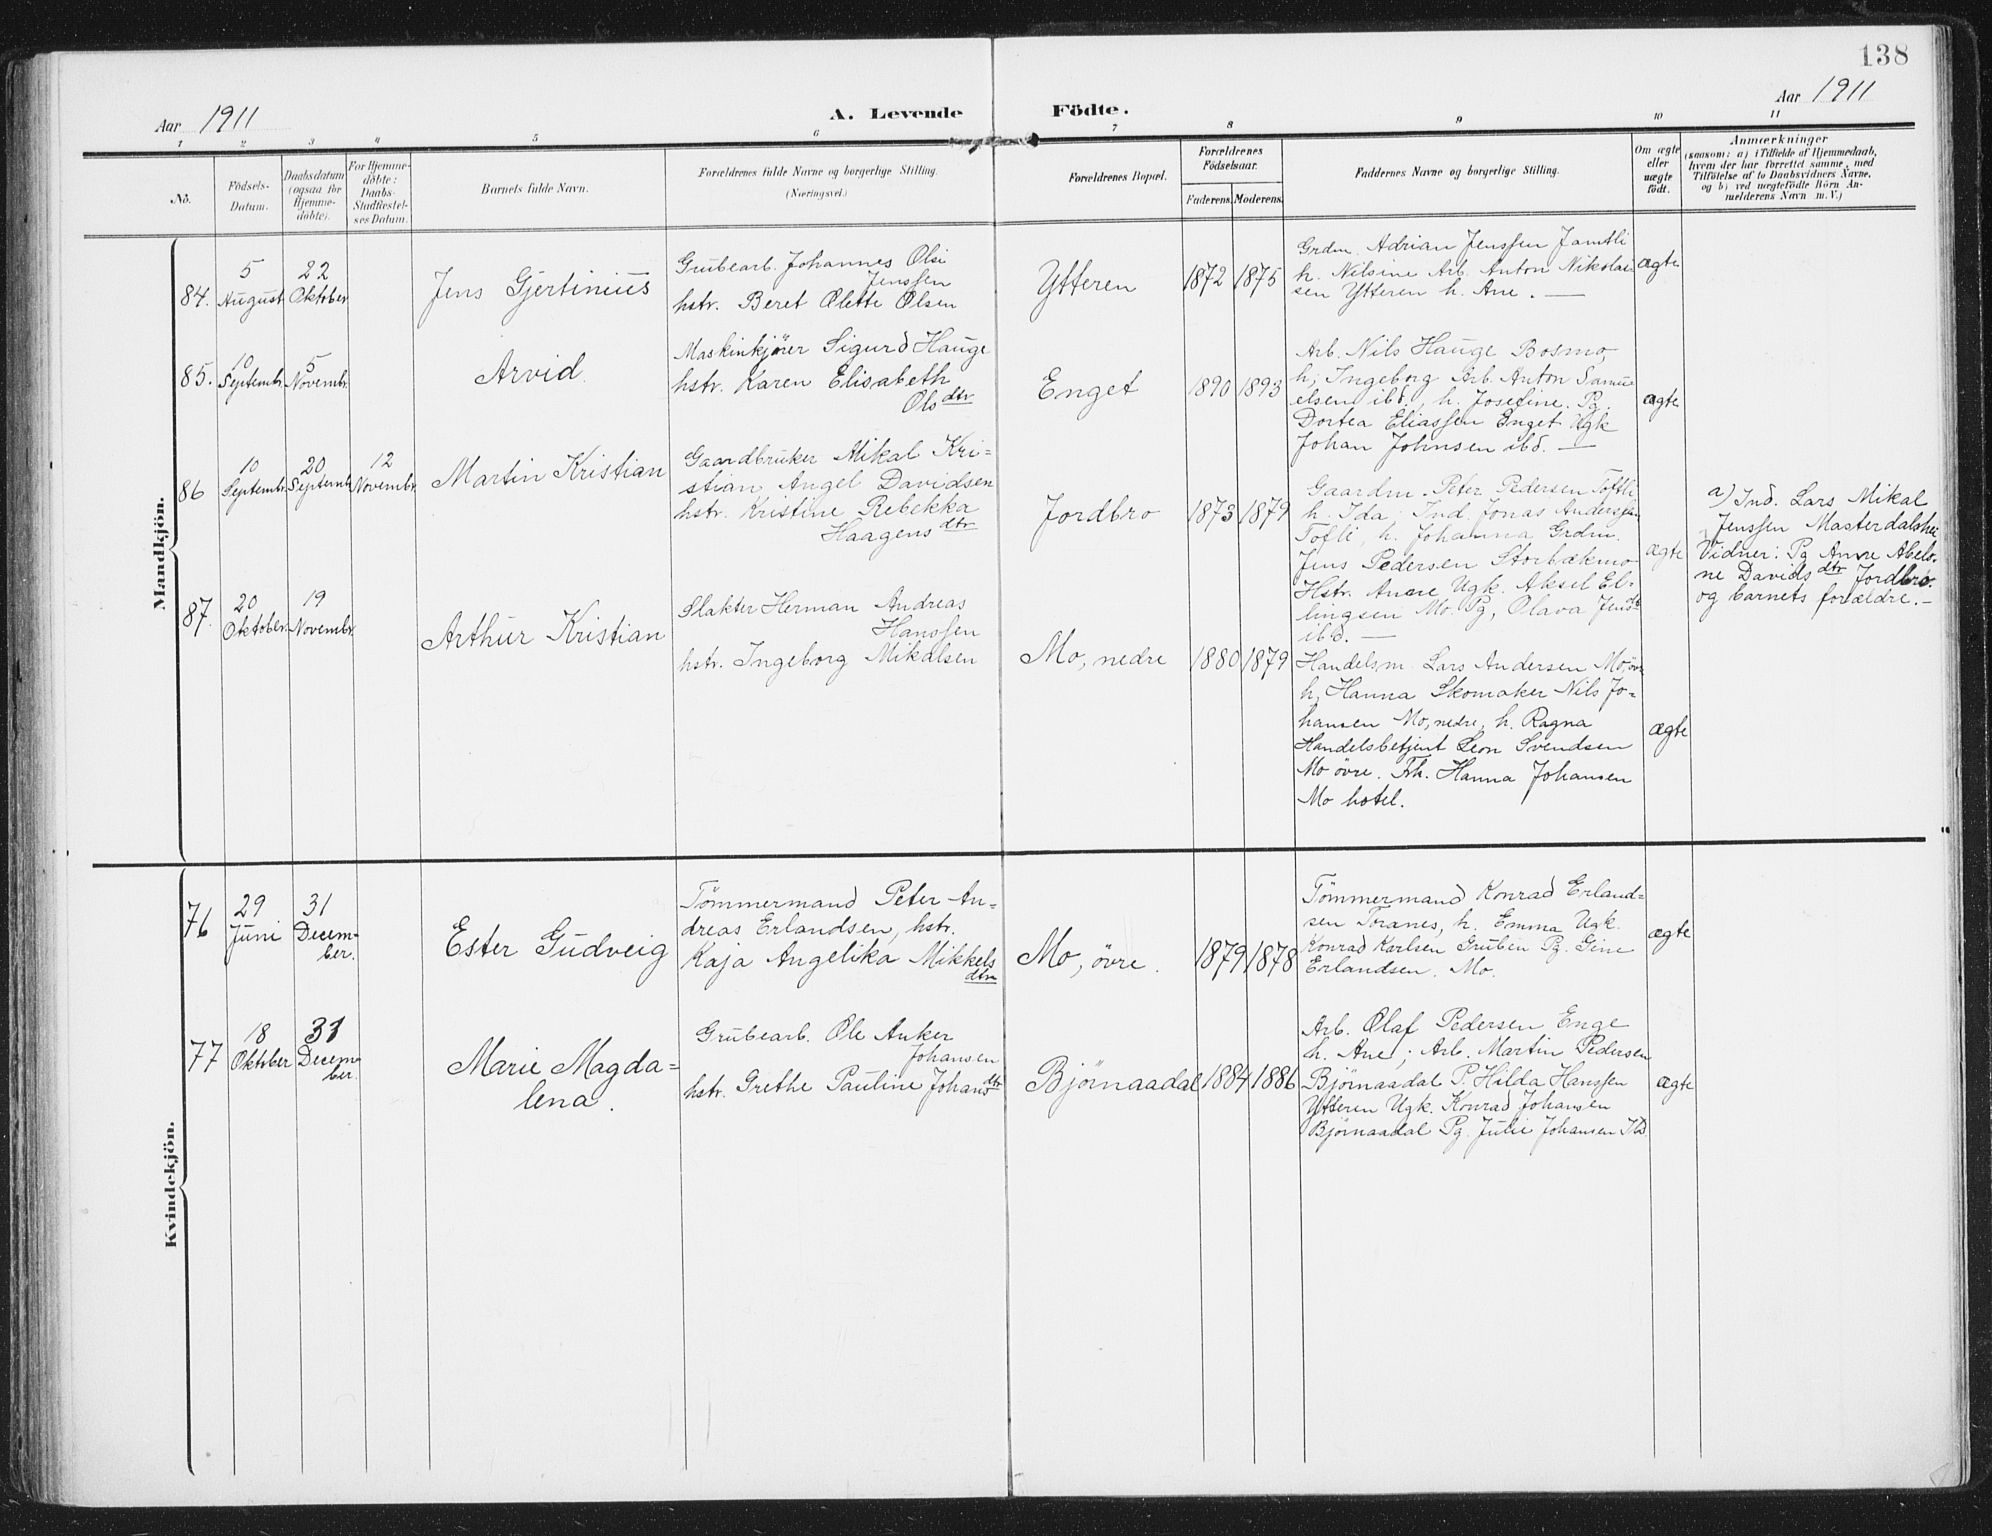 138
Aar 1911
A. Levende Födte.
Aar 1911
1 2 3 4 5 6 7 8 9 10 11
No.
Födsels-
Datum.
Daabsdatum
(ogsaa for
Hjemme-
döbte).
For Hjemme-
döbte:
Daabs-
Stadfæstel-
ses Datum.
Barnets fulde Navn.
Forældrenes fulde Navne og borgerlige Stilling.
(Næringsvei.)
Forældrenes Bopæl.
Forældrenes
Födselsaar.
Faderens.
Moderens.
Faddernes Navne og borgerlige Stilling.
Om ægte
eller
uægte
födt.
Anmærkninger
(saasom: a) i Tilfælde af Hjemmedaab,
hvem der har forrettet samme, med
Tilföielse af to Daabsvidners Navne,
og b) ved uægtefödte Börn An-
melderens Navn m. V.)
Mandkjön.
84.
5
August
22
Oktober
Jens Gjertinius
Grubearb. Johannes Olai
Jenssen
hstr. Beret Olette Olsen
Ytteren
1872
1875
Grdm. Adrian Jenssen Jamtli
h. Nilsine Arb. Anton Nikolai
sen Ytteren h. Ane. —
ægte
85.
10
Septembr.
5
Novembr.
Arvid
Maskinkjører Sigurd Hauge
hstr. Karen Elisabeth
Olsdtr
Enget
1890
1893
Arb. Nils Hauge Bosmo,
h; Ingeborg Arb. Anton Samu
elsen ibd. h. Josefine. Pg.
Dortea Eliassen Enget Ugk
Johan Johnsen ibd. —
ægte
86
10
Septembr.
20
Septembr
12
Novembr.
Martin Kristian
Gaardbruker Mikal Kri=
stian Angel Davidsen
hstr. Kristine Rebekka
Haagensdtr
Jordbro
1873
1879
Gaardm. Peter Pedersen Toftli
h. Ida; Ind. Jonas Anderssen
Tofli, h. Johanna Grdm.
Jens Pedersen Storbækmo
Hstr. Anne Ugk. Aksel El-
lingsen Mo. Pg, Olava Jensdtr
ibd. —
ægte
a) Ind. Lars Mikal
Jenssen Masterdalshei
Vidner: Pg Anne Abelo-
ne Davidsdtr Jordbro.
og barnets forældre. —
87.
20
Oktober.
19
Novembr.
Arthur Kristian
Slakter Herman Andreas
Hanssen
hstr. Ingeborg Mikalsen
Mo, nedre
1880
1879
Handelsm. Lars Andersen Mo, øvr
h, Hanna Skomaker Nils Jo-
hansen Mo, nedre, h. Ragna
Handelsbetjent Leon Svendsen
Mo øvre. Frk. Hanna Johansen
Mo hotel.
ægte
Kvindekjön.
76
29
Juni
31
Decem-
ber.
Ester Gudveig
Tømmermand Peter An=
dreas Erlandsen, hstr.
Kaja Angelika Mikkels
dtr
Mo, øvre.
1879
1878
Tømmermand Konrad Erland=
sen Toranes, h. Emma Ugk.
Konrad Karlsen Gruben Pg. Gine
Erlandsen. Mo.
ægte
77
18
Oktober
31
Decem-
ber.
Marie Magda-
lena.
Grubearb. Ole Anker
Johansen
hstr. Grethe Pauline Johansdtr
Bjørnaadal
1884
1886
Arb. Olaf Pedersen Enge
h. Ane; Arb. Martin Pedersen
Bjørnaadal P. Hilda Hanssen
Ytteren Ugk. Konrad Johansen
Bjørnaadal Pg. Julie Johansen Ibd.
ægte